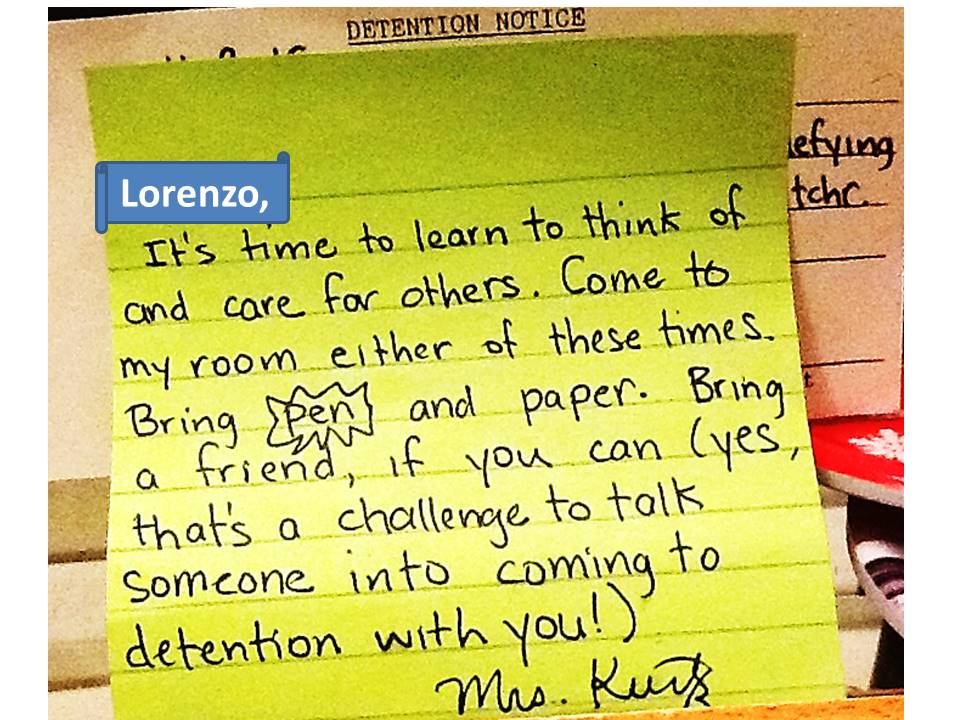 DETENTION NOTICE
efying
tchr.
Lorenzo,
It's time to learn to think of
and care for others. Come to
my room either of these times.
Bring pen and paper. Bring
a friend, if you can (yes,
that's a challenge to talk
someone into coming to
detention with you!)
Mrs. Kurtz